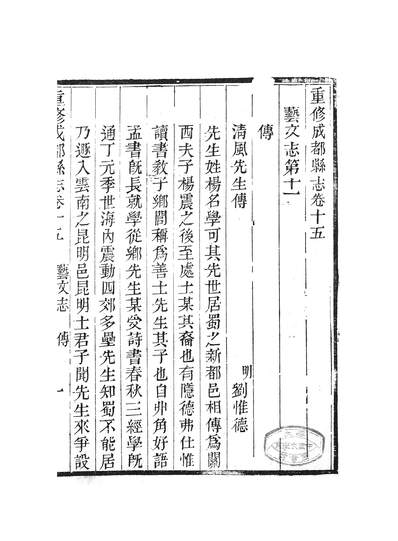 重修成都縣志卷十五
藝文志第十一
傳
清風先生傳
明 劉惟德
先生姓楊名學可其先世居蜀之新都邑相傳為關
西夫子楊震之後至處士某其裔也有隱德弗仕惟
讀書教子鄉閭稱為善士先生其子也自丱角好語
孟書既長就學從鄉先生某受詩書春秋三經學既
通丁元季世海內震動四郊多壘先生知蜀不能居
乃遯入雲南之昆明邑昆明士君子聞先生來爭設
重修成都縣志卷十五
藝文志
傳
一